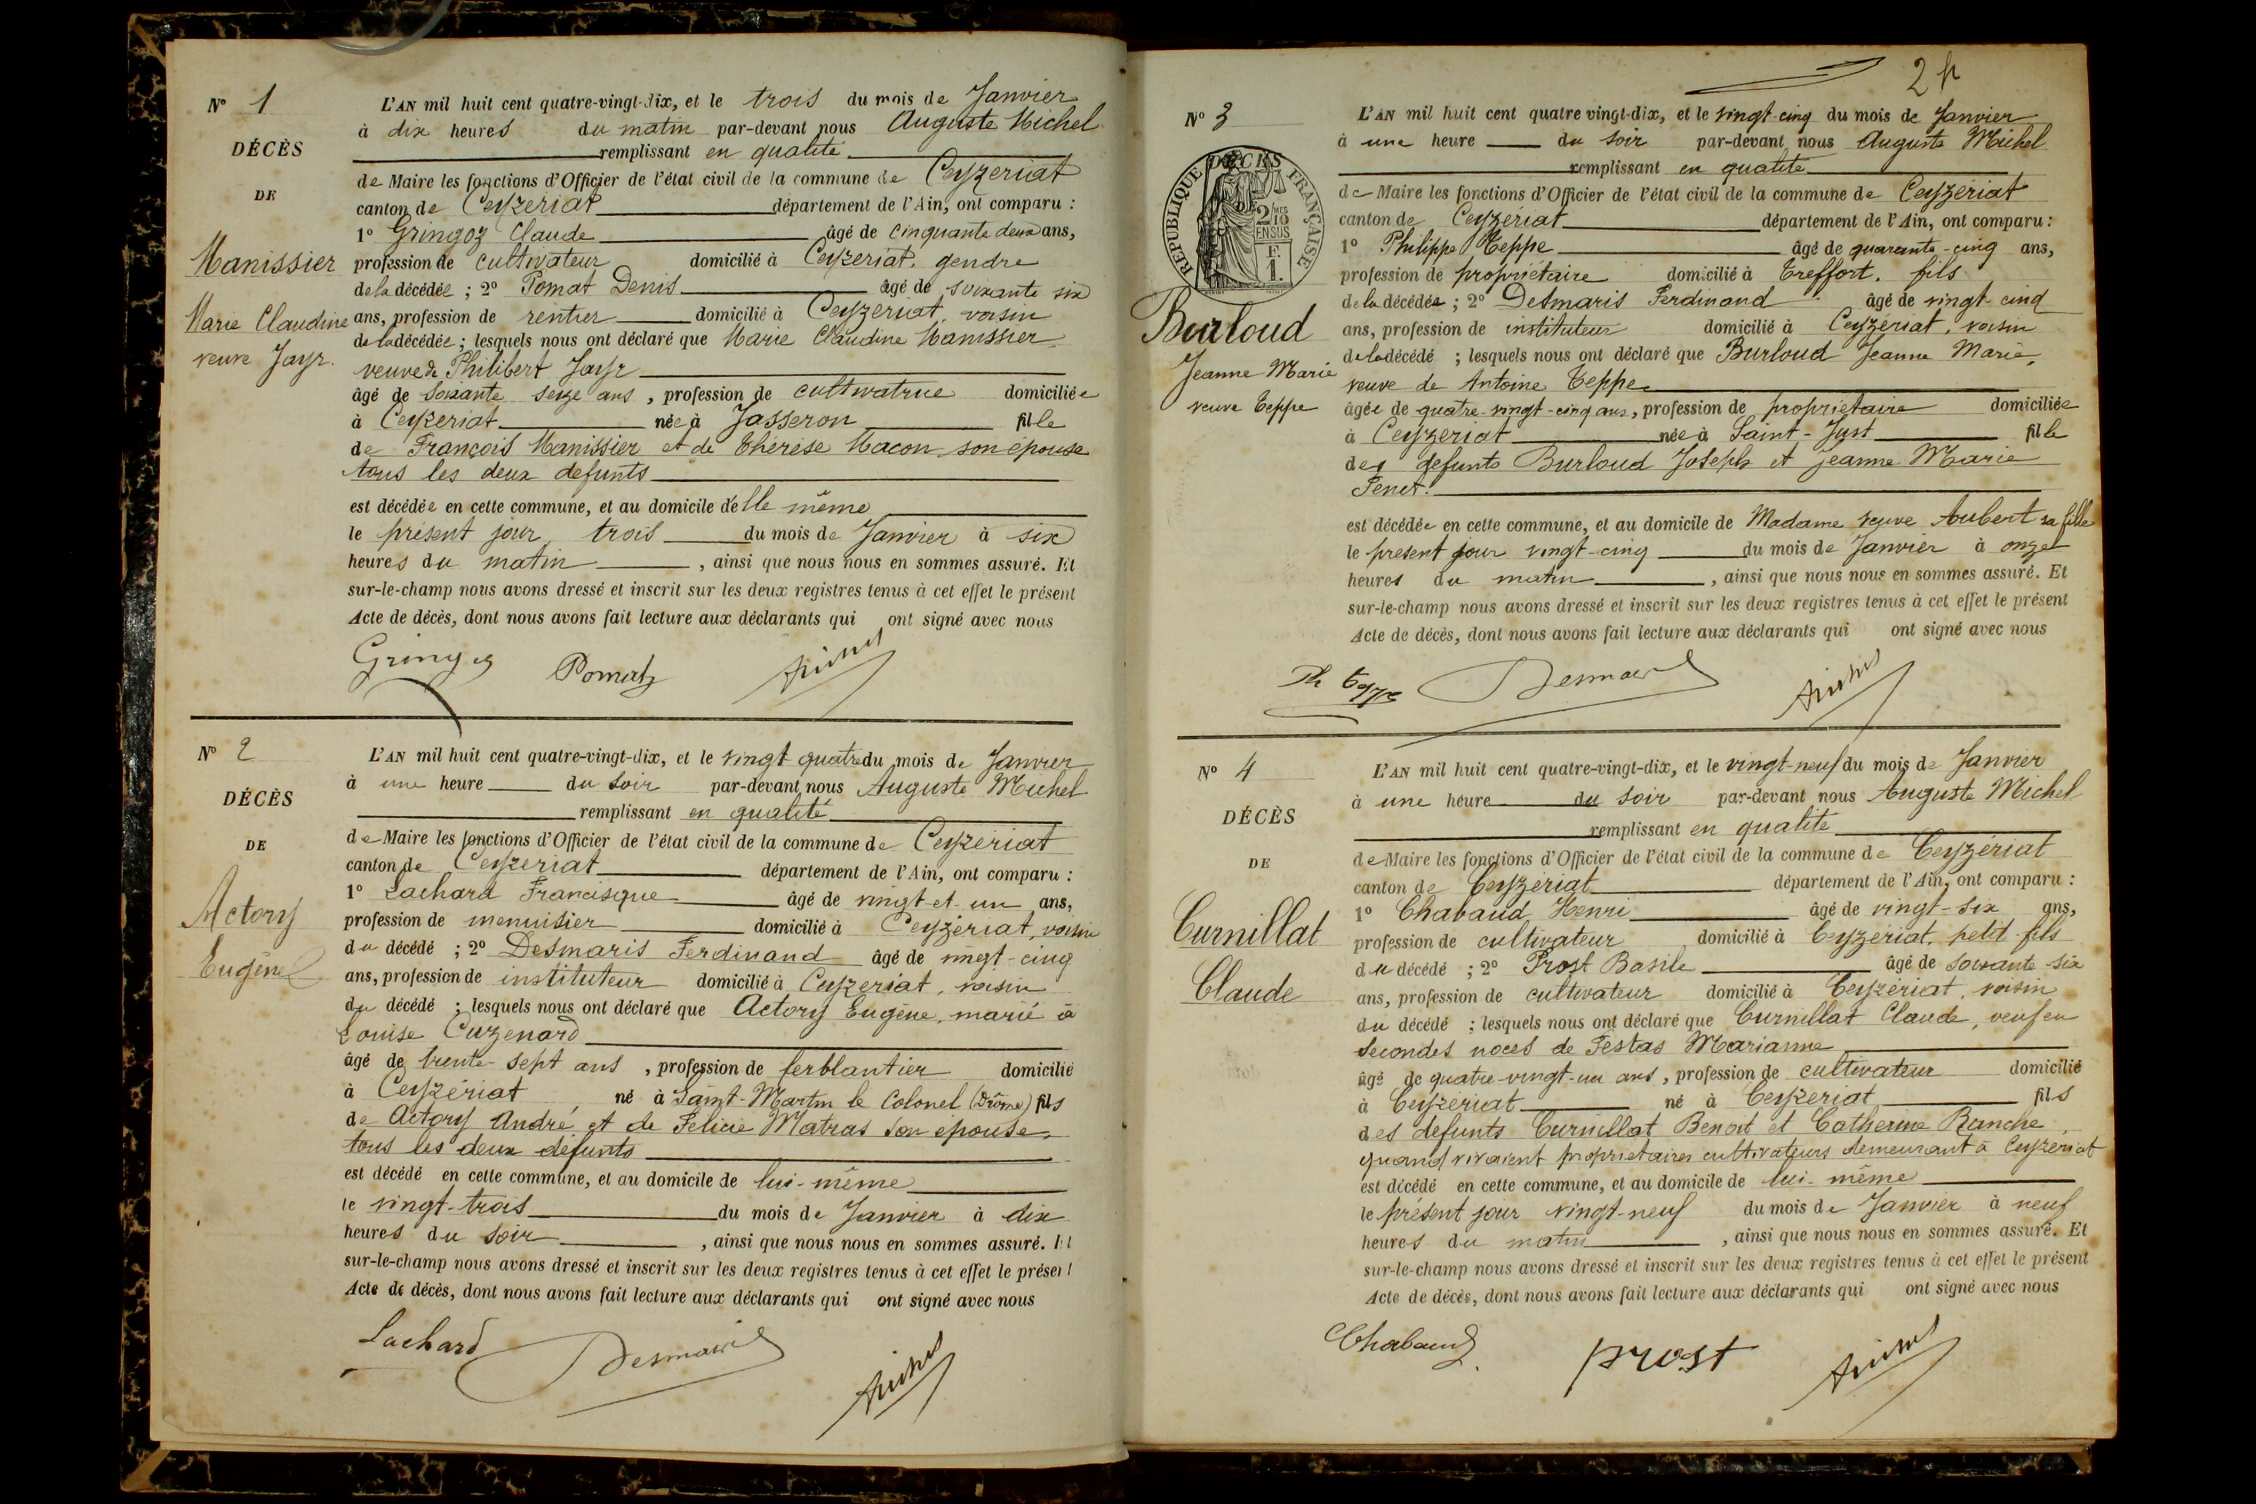 N° 1
DÉCÈS
DE
Manissier
Marie Claudine
veuve Jayr.
L'AN mil huit cent quatre-vingt-dix, et le trois du mois de Janvier
à dix heures du matin par-devant nous Auguste Michel
remplissant en qualité
de Maire les fonctions d'Officier de l'état civil de la commune de Ceyzeriat
canton de Ceyzeriat département de l'Ain, ont comparu :
1° Gringoz Claude âgé de cinquante deux ans,
profession de cultivateur domicilié à Ceyzeriat, gendre
de la décédée ; 2° Pomat Denis âgé de soixante six
ans, profession de rentier domicilié à Ceyzeriat, voisin
de la décédée ; lesquels nous ont déclaré que Marie Claudine Manissier
veuve de Philibert Jayr
âgé de soixante seize ans, profession de cultivatrice domiciliée
à Ceyzeriat née à Jasseron fille
de François Manissier et de Thérèse Macon, son épouse
tous les deux defunts
est décédée en cette commune, et au domicile d'elle même
le présent jour trois du mois de Janvier à six
heures du matin, ainsi que nous nous en sommes assuré. Et
sur-le-champ nous avons dressé et inscrit sur les deux registres tenus à cet effet le présent
Acte de décès, dont nous avons fait lecture aux déclarants qui ont signé avec nous
Gringoz Pomat Michel
N° 2
DÉCÈS
DE
Actory
Eugène
L'AN mil huit cent quatre-vingt-dix, et le vingt quatre du mois de Janvier
à une heure du soir par-devant nous Auguste Michel
remplissant en qualité
de Maire les fonctions d'Officier de l'état civil de la commune de Ceyzériat
canton de Ceyzeriat département de l'Ain, ont comparu :
1° Lachard Francisque âgé de vingt-et-un ans,
profession de menuisier domicilié à Ceyzériat, voisin
du décédé ; 2° Desmaris Ferdinand âgé de vingt-cinq
ans, profession de instituteur domicilié à Ceyzeriat, voisin
du décédé ; lesquels nous ont déclaré que Actory Eugène, marié à
Louise Cuzenard
âgé de trente-sept ans, profession de ferblantier domicilié
à Ceyzériat né à Saint-Martin le Colonel (Drôme) fils
de Actory André, et de Felicie Matras son épouse,
tous les deux défunts
est décédé en cette commune, et au domicile de lui-même
le vingt-trois du mois de Janvier à dix
heures du soir, ainsi que nous nous en sommes assuré. Et
sur-le-champ nous avons dressé et inscrit sur les deux registres tenus à cet effet le présent
Acte de décès, dont nous avons fait lecture aux déclarants qui ont signé avec nous
Lachard Desmaris Michel
2
N° 3
DÉCÈS
DE
RÉPUBLIQUE FRANÇAISE
2/10 MES
EN SUS
F.
1.
Burloud
Jeanne Marie
veuve Teppe
L'AN mil huit cent quatre vingt-dix, et le vingt-cinq du mois de Janvier
à une heure du soir par-devant nous Auguste Michel
remplissant en qualité
de Maire les fonctions d'Officier de l'état civil de la commune de Ceyzériat
canton de Ceyzériat département de l'Ain, ont comparu :
1° Philippe Teppe âgé de quarante-cinq ans,
profession de propriétaire domicilié à Treffort, fils
de la décédée ; 2° Desmaris Ferdinand âgé de vingt-cinq
ans, profession de instituteur domicilié à Ceyzériat, voisin
de la décédé ; lesquels nous ont déclaré que Burloud Jeanne Marie,
veuve de Antoine Teppe
âgée de quatre-vingt-cinq ans, profession de propriétaire domiciliée
à Ceyzériat née à Saint-Just fille
des defunts Burloud Joseph et Jeanne Marie
Fenet.
est décédée en cette commune, et au domicile de Madame veuve Aubert sa fille
le présent jour vingt-cinq du mois de Janvier à onze
heures du matin, ainsi que nous nous en sommes assuré. Et
sur-le-champ nous avons dressé et inscrit sur les deux registres tenus à cet effet le présent
Acte de décès, dont nous avons fait lecture aux déclarants qui ont signé avec nous
Ph Teppe Desmaris Michel
N° 4
DÉCÈS
DE
Curnillat
Claude
L'AN mil huit cent quatre-vingt-dix, et le vingt-neuf du mois de Janvier
à une heure du soir par-devant nous Auguste Michel
remplissant en qualité
de Maire les fonctions d'Officier de l'état civil de la commune de Ceyzériat
canton de Ceyzériat département de l'Ain, ont comparu :
1° Chabaud Henri âgé de vingt-six ans,
profession de cultivateur domicilié à Ceyzériat, petit-fils
du décédé ; 2° Prost Basile âgé de soixante six
ans, profession de cultivateur domicilié à Ceyzériat, voisin
du décédé ; lesquels nous ont déclaré que Curnillat Claude, veuf en
secondes noces de Festas Marianne
âgé de quatre-vingt-un ans, profession de cultivateur domicilié
à Ceyzériat né à Ceyzériat fils
des défunts Curnillat Benoit et Catherine Ranche,
quand vivaient propriétaires cultivateurs demeurant à Ceyzeriat
est décédé en cette commune, et au domicile de lui-même
le présent jour vingt-neuf du mois de Janvier à neuf
heures du matin, ainsi que nous nous en sommes assuré. Et
sur-le-champ nous avons dressé et inscrit sur les deux registres tenus à cet effet le présent
Acte de décès, dont nous avons fait lecture aux déclarants qui ont signé avec nous
Chabaud prost Michel